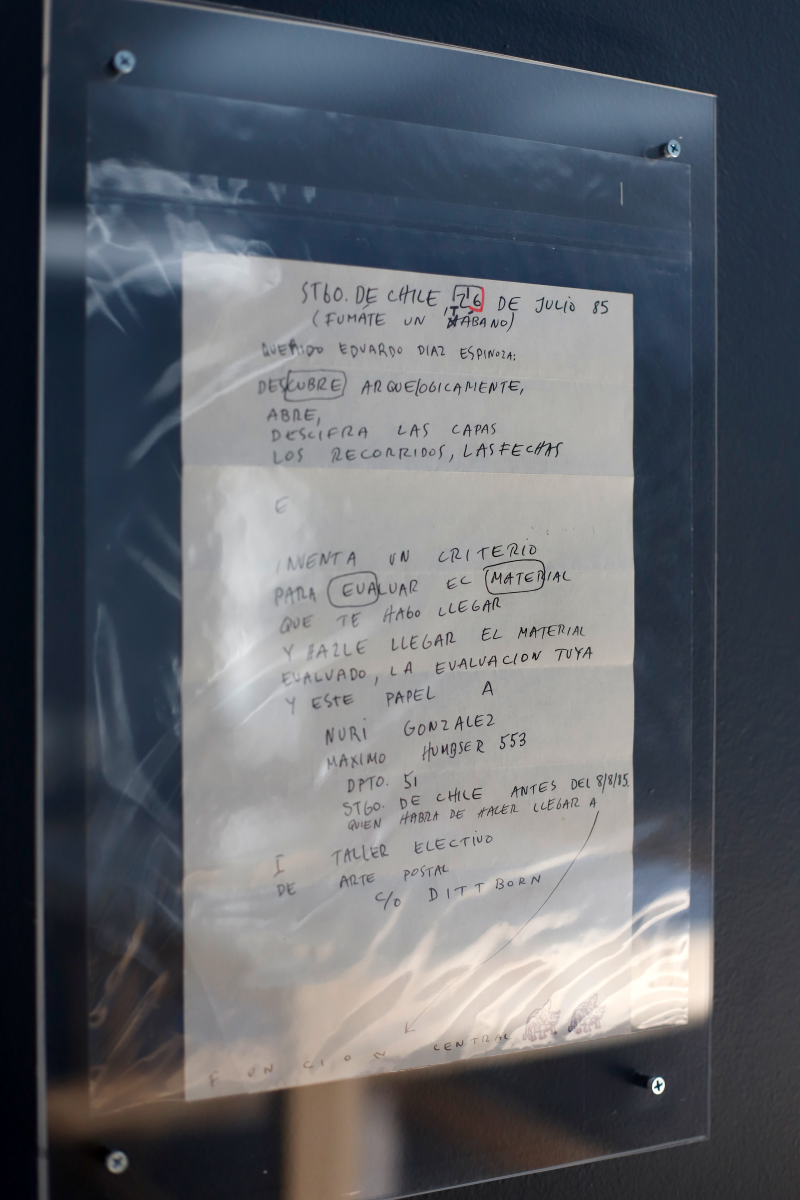 STGO. DE CHILE 26 DE JULIO 85
(FUMATE UN HABANO)
QUERIDO EDUARDO DIAZ ESPINOZA:
DESCUBRE ARQUEOLOGICAMENTE,
ABRE,
DESCIFRA LAS CAPAS
LOS RECORRIDOS, LAS FECHAS
E
INVENTA UN CRITERIO
PARA EVALUAR EL MATERIAL
QUE TE HAGO LLEGAR
Y HAZLE LLEGAR EL MATERIAL
EVALUADO, LA EVALUACION TUYA
Y ESTE PAPEL A
NURI GONZALEZ
MAXIMO HUMBSER 553
DPTO. 51
STGO. DE CHILE ANTES DEL 8/8/85.
QUIEN HABRA DE HACER LLEGAR A
I TALLER ELECTIVO
DE ARTE POSTAL
C/O DITTBORN
FUNCION CENTRAL